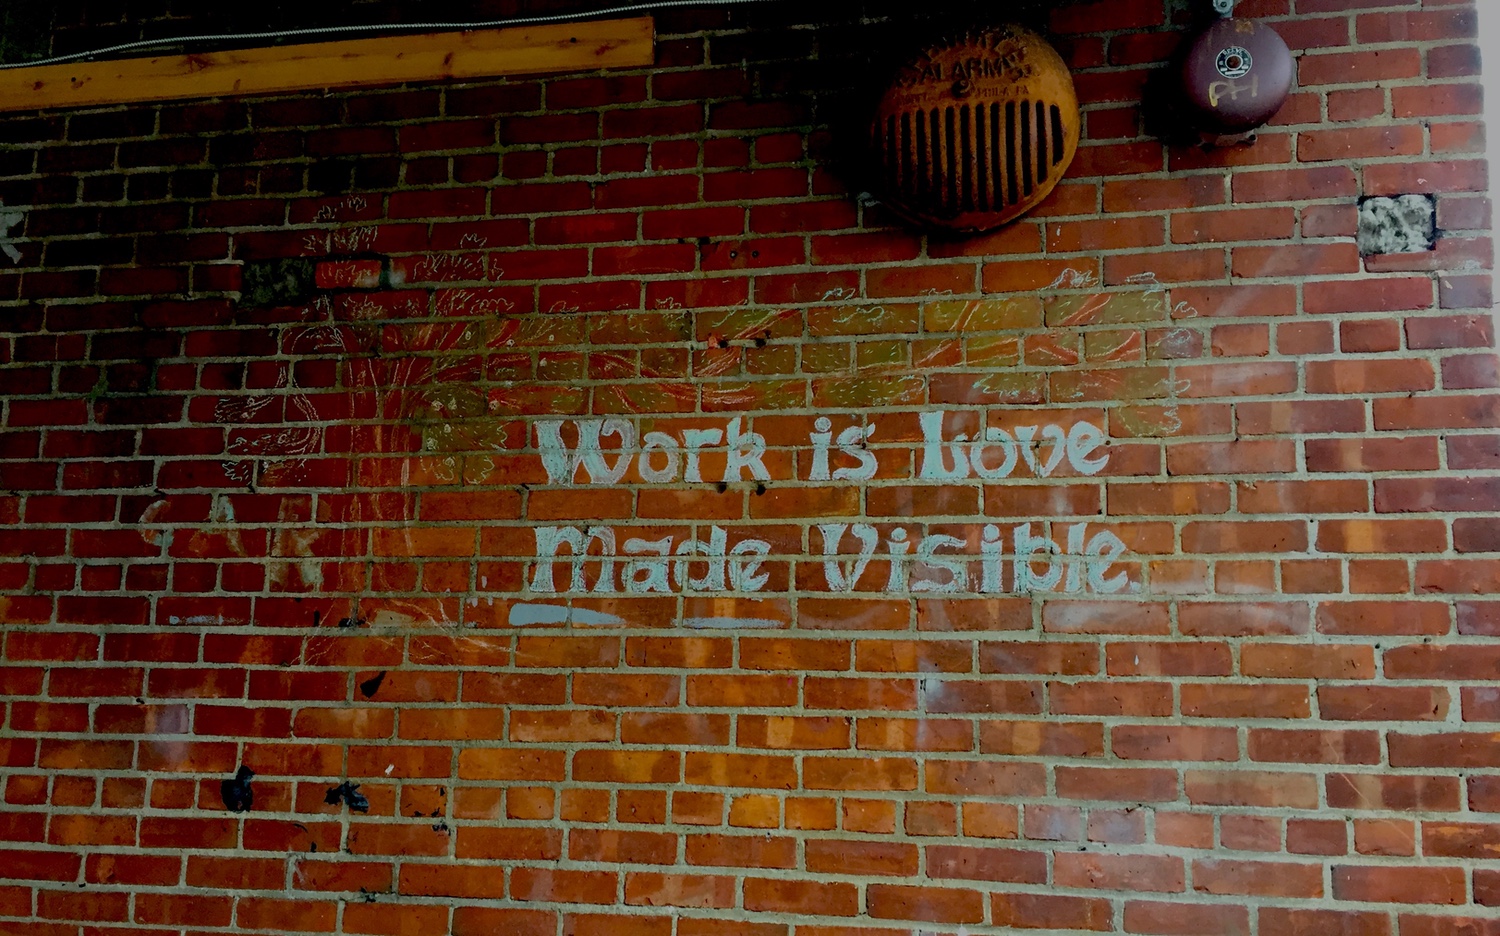 ALARM
PHILA. PA
Work is Love
Made Visible.